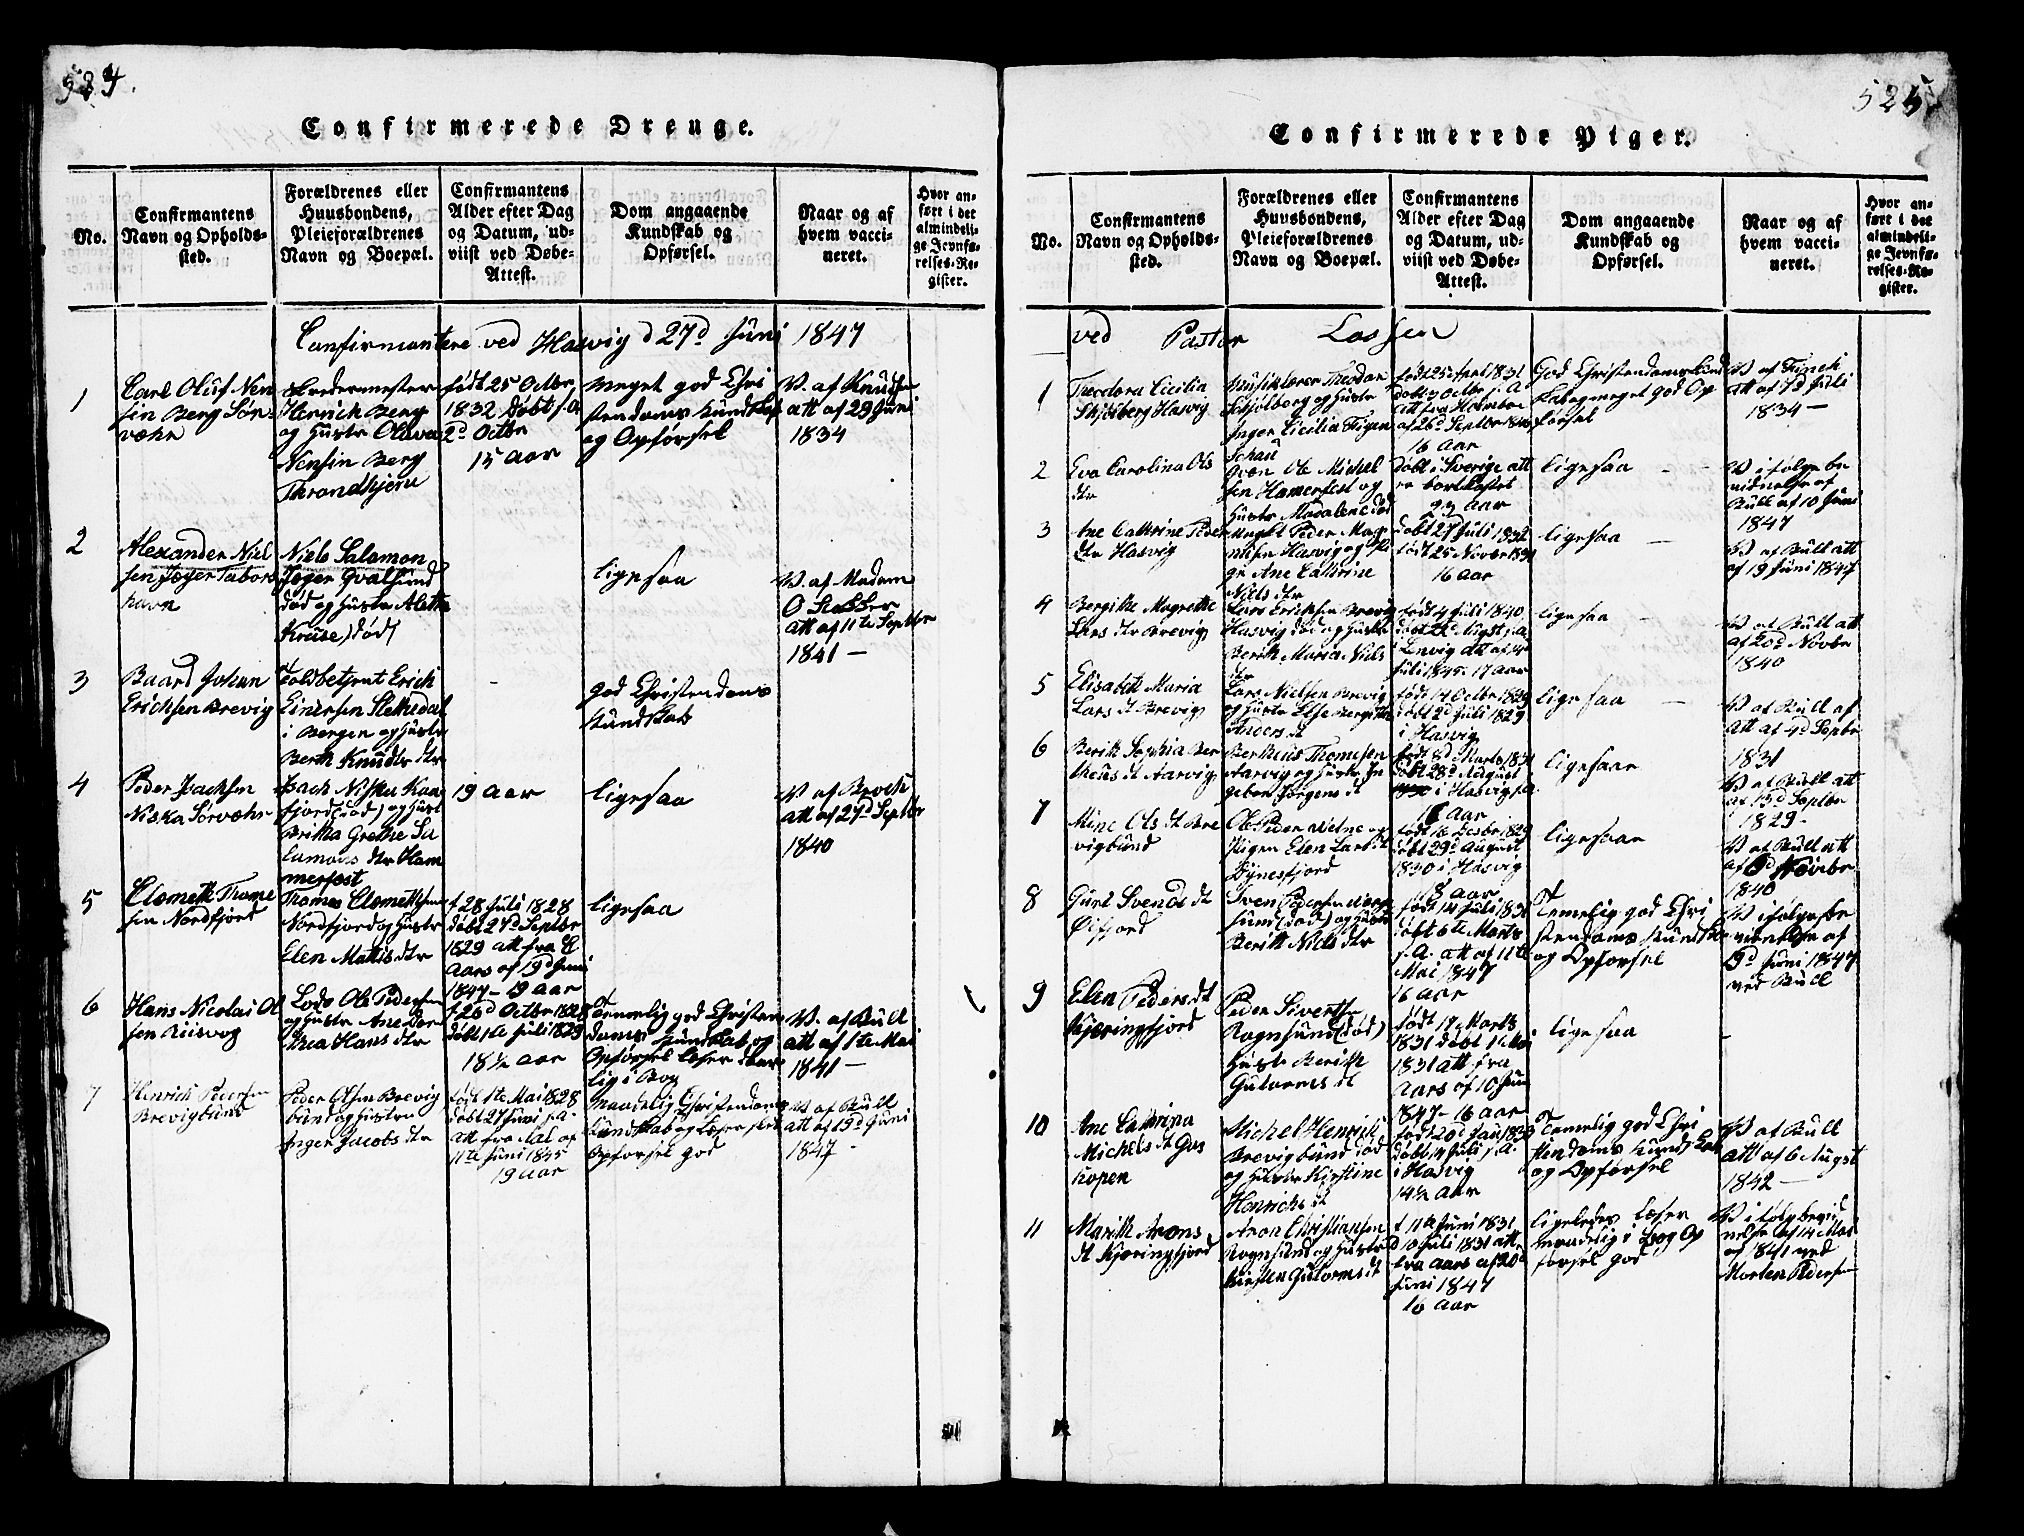 524.
Confirmerede Drenge.
No.
Confirmantens
Navn og Opholds-
sted.
Forældrenes eller
Huusbondens,
Pleieforældrenes
Navn og Boepæl.
Confirmantens
Alder efter Dag
og Datum, ud-
viist ved Døbe-
Attest.
Dom angaaende
Kundskab og
Opførsel.
Naar og af
hvem vacci-
neret.
Hvor an-
ført i det
almindeli-
ge Jevnfø-
relses-Re-
gister.
Confirmantere ved Hasvig d 27d Juni 1847
1
Carl Oluf Nen
sen Berg Sør-
væhr
Henrich Berg
og Hustr Olava
Nensin Berg
Throndhjem
født 25 Octbr
1832 Døbt s.A
2d Octbr
15 Aar
Meget god Chri
stendoms Kundskab
og Opførsel
V. af Knudsen
att af 29 Juni
1834
2
Alexander Niel
sen Jæger Tabors
havn
Niels Salamon
Jæger Qvalsund
død og Hustr Aletha
Kruse) død(
ligesaa
V. af Madam
att af 11te Septbr
1841 —
3
Baard Johan
Erichsen Brevig
Toldbetjent Erich
Einersen Slethedal
i Bergen og Hustr
Berth Knuds dtr
-
god Christendoms
Kundskab
4
Peder Isachsen
Niska Sørvæhr
Isach Niska Kaa
fjord (død) og Hustr
Britha Grethe Sa
lamons dtr Ham
merfest
19 Aar
ligesaa
V. af Broch
att af 27d Septbr
1840
5
Clemeth Thome
sen Nordfjord
Thomes Clemethsen
Nordfjord og Hustr
Elen Mathis dtr
f 28 Juli 1828
døbt 27d Septbr
1829 att fra
Aars af 19d Juni
1847 – 19 Aar
ligesaa
6
Hans Nicolai Ol
sen Riisvog
Lods Ole Pedersen
og Hustr Ane Dor
thea Hans dtr
f 26d Octbr 1828
døbt 1te Juli 1829
18½ Aar
Temmelig god Christen
doms Kundskab og
Opførsel læser daar
lig i Bog
V. af Bull
att af 1te Mai
1841 —
7
Henrich Pedersen
Brevigbund
Peder Olsen Brevig
bund og Hustru
Inger Jacobs dtr
født 1te Mai 1828
døbt 27 Juni s.A.
att fra Aal af
11te Juni 1845
19 Aar
Maadelig Christendoms
Kundskab og læser slet
Opførsel god
V. af Bull
att af 19d Juni
1847 -
525.
Confirmerede Piger.
No.
Confirmantens
Navn og Opholds-
sted.
Forældrenes eller
Huusbondens,
Pleieforældrenes
Navn og Boepæl.
Confirmantens
Alder efter Dag
og Datum, ud-
viist ved Døbe-
Attest.
Dom angaaende
Kundskab og
Opførsel.
Naar og af
hvem vacci-
neret.
Hvor an-
ført i det
almindeli-
ge Jevnfø-
relses-Re-
gister.
ved Pastor Lassen
1
Theodora Cicilia
Skjølberg Hasvig
Musiklærer Theodor
Schjølberg og Hustr
Inger Cicilia Figen
Schau
født 25 April 1831
døbt Octbr s.A.
Att fra
af 26d Septbr
16 Aar
God Christendoms Kund
skab meget god Op
førsel
V. af Finch
att af 7d Juli
1834 —
2
Eva Carolina Ols
dtr
Qvæn Ole Michel
sen Hamerfest og
Hustr Madalene død
døbt i Sverige att
er bortkastet
23 Aar
ligesaa
V ifølge be
vidnelse af
Bull af 10 Juni
1847
3
Ane Cathrine Peder
dtr Hasvig
Ungkl Peder Mag
nusen Hasvig og Pi
ge Ane Cathrine
Niels dtr
døbt 27 Juli 1832
født 25 Novbr 1831
16 Aar
ligesaa
V. af Bull att
af 19 Juni 1847
4
Bergithe Magrethe
Lars dtr Brevig
Lars Erichsen Brevig
Hasvig død og Hustr
Berith Maria Niels
dtr
født 4 Juli 1840
døbt 22d Augst s.A.
Juli 1845. 17 Aar
ligesaa
V. af Bull att
af 20d Novbr
1840
5
Elisabeth Maria
Lars dt Brevig
Lars Nielsen Brevig
og Hustr Else Bergitte
Anders dt
født 14 Octbr 1829
døbt 2d Juli 1829
i Hasvig
ligesaa
V. af Bull af
att af 4d Septbr
1831
6
Berith Sophia Ber
theus dt Aarvig
Bertheus Thomesen
Aarvig og Hustr In
gebor Jørgens dt
født 8d Marts 1831
døbt 28d August
i Hasvig s.A.
16 Aar
ligesaa
V. af Bull att
af 15d Septbr
1829 -
7
Mine Ols dt Bre
vigbund
Ole Peder og
Pigen Elen Lars dt
Dynesfjord
født 16 Desbr 1829
døbt 29d August
1830 i Hasvig
18 Aar
ligesaa
V. af Bull att
af Novbr
1840
8
Guri Svends dt
Øifjord
Sven Pedersen
sund (død) og Hustr
Berith Niels dtr
født 14 Juli 1831
døbt 6te Marts
s.A. att af 11te
Mai 1847
16 Aar
Temmelig god Chri
stendoms Kundskab
og Opførsel
V. ifølge be
vidnelse af
9d Juni 1847
ved Bull
9
Elen Peders dt
Kjæringfjord
Peder Sivertsen
Rognsund (død)
Hustr Berith
Gutorms dt
født 17 Marts
1831 døbt 1te Mai
1831 att fra
Aars af 10 Juni
1847 – 16 Aar
ligesaa
-
10
Ane Cathrina
Michels dt Gaas
hopen
Michel Henrich
Brevigbund død
og Hustr Kirstine
Henrichs dt
født 20d Jan 1833
døbt 14 Juli s.A.
i Hasvig
14½ Aar
Temmelig god Chri
stendoms Kundskab
og Opførsel
V. af Bull
att af 6 Augst
1842 —
11
Marith Arons
dt Kjæringfjord
Aron Christiansen
Rognsund og Hustr
Kirsten Gutorms dt
f 11te Juni 1831
d 10 Juli 1831 att
fra Aars af 20d
Juni 1847
16 Aar
ligeledes læser
maadelig i Bog Op
førsel god
V ifølg bevid
nelse af 14 Mai
af 1841 ved
Morten Pedersen